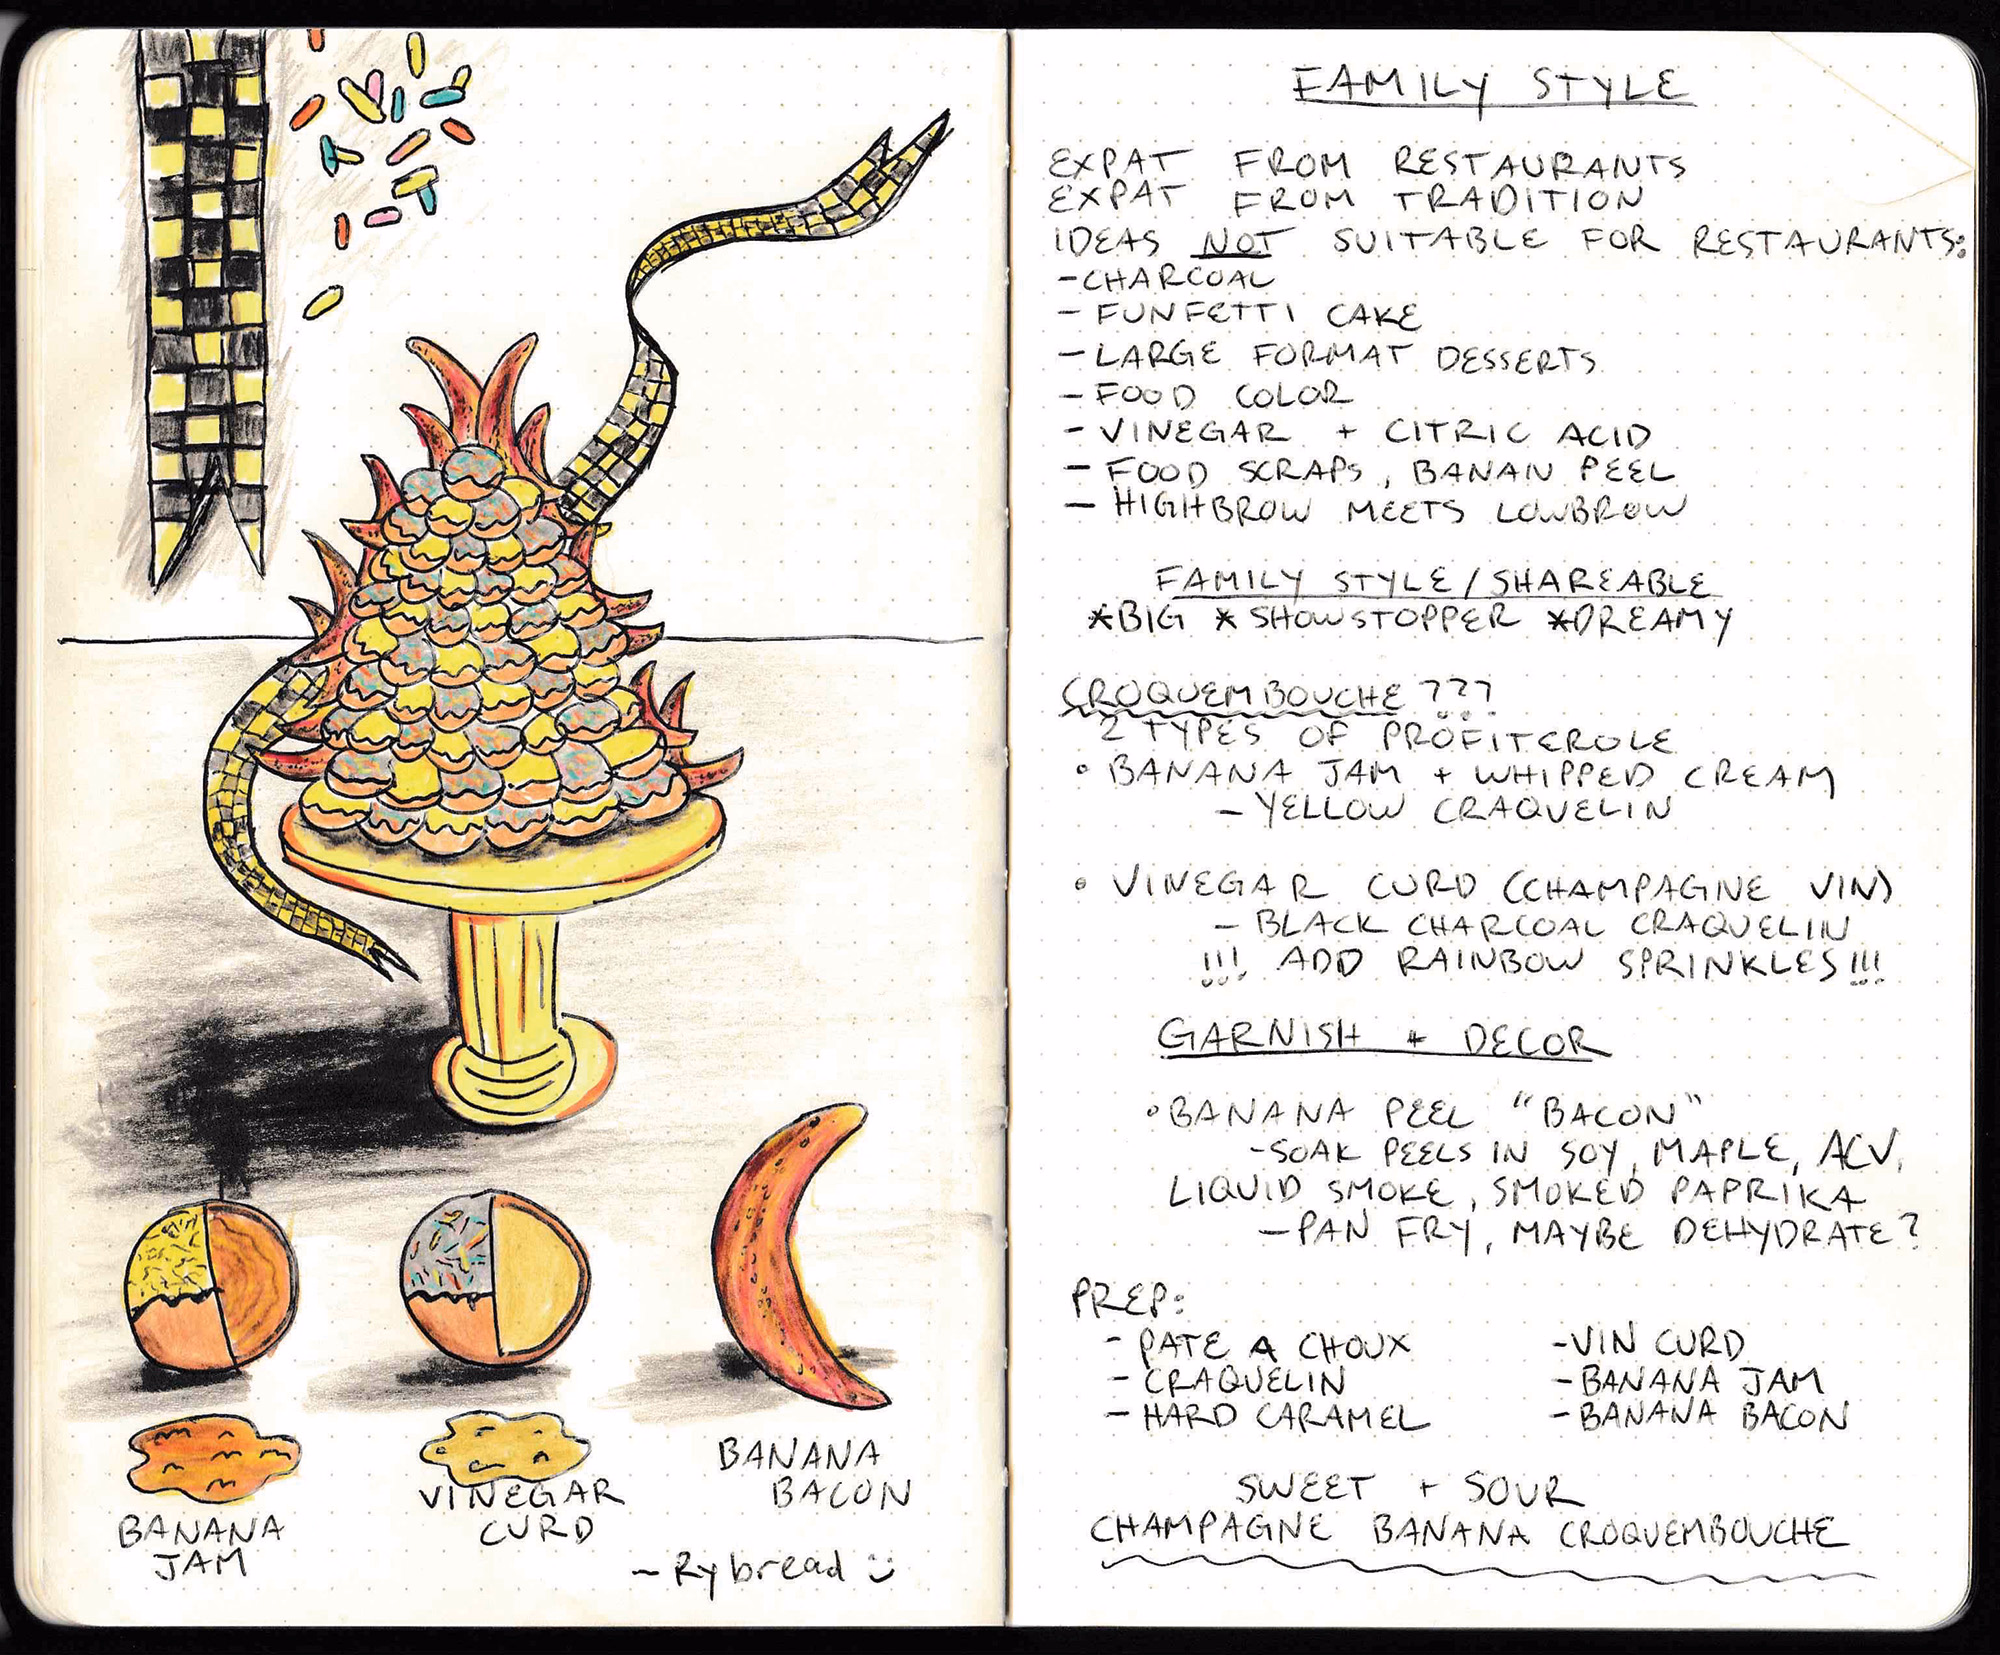 BANANA
JAM
VINEGAR
CURD
BANANA
BACON
- Rybread :)
FAMILY STYLE
EXPAT FROM RESTAURANTS
EXPAT FROM TRADITION
IDEAS NOT SUITABLE FOR RESTAURANTS:
- CHARCOAL
- FUNFETTI CAKE
- LARGE FORMAT DESSERTS
- FOOD COLOR
- VINEGAR + CITRIC ACID
- FOOD SCRAPS, BANAN PEEL
- HIGHBROW MEETS LOWBROW
FAMILY STYLE/SHAREABLE
*BIG *SHOWSTOPPER *DREAMY
CROQUEMBOUCHE???
2 TYPES OF PROFITEROLE
• BANANA JAM + WHIPPED CREAM
- YELLOW CRAQUELIN
• VINEGAR CURD (CHAMPAGNE VIN)
- BLACK CHARCOAL CRAQUELIN
!!! ADD RAINBOW SPRINKLES!!!
GARNISH + DECOR
• BANANA PEEL "BACON"
- SOAK PEELS IN SOY, MAPLE, ACV,
LIQUID SMOKE, SMOKED PAPRIKA
- PAN FRY, MAYBE DEHYDRATE?
PREP:
- PATE A CHOUX
- CRAQUELIN
- HARD CARAMEL
- VIN CURD
- BANANA JAM
- BANANA BACON
SWEET + SOUR
CHAMPAGNE BANANA CROQUEMBOUCHE